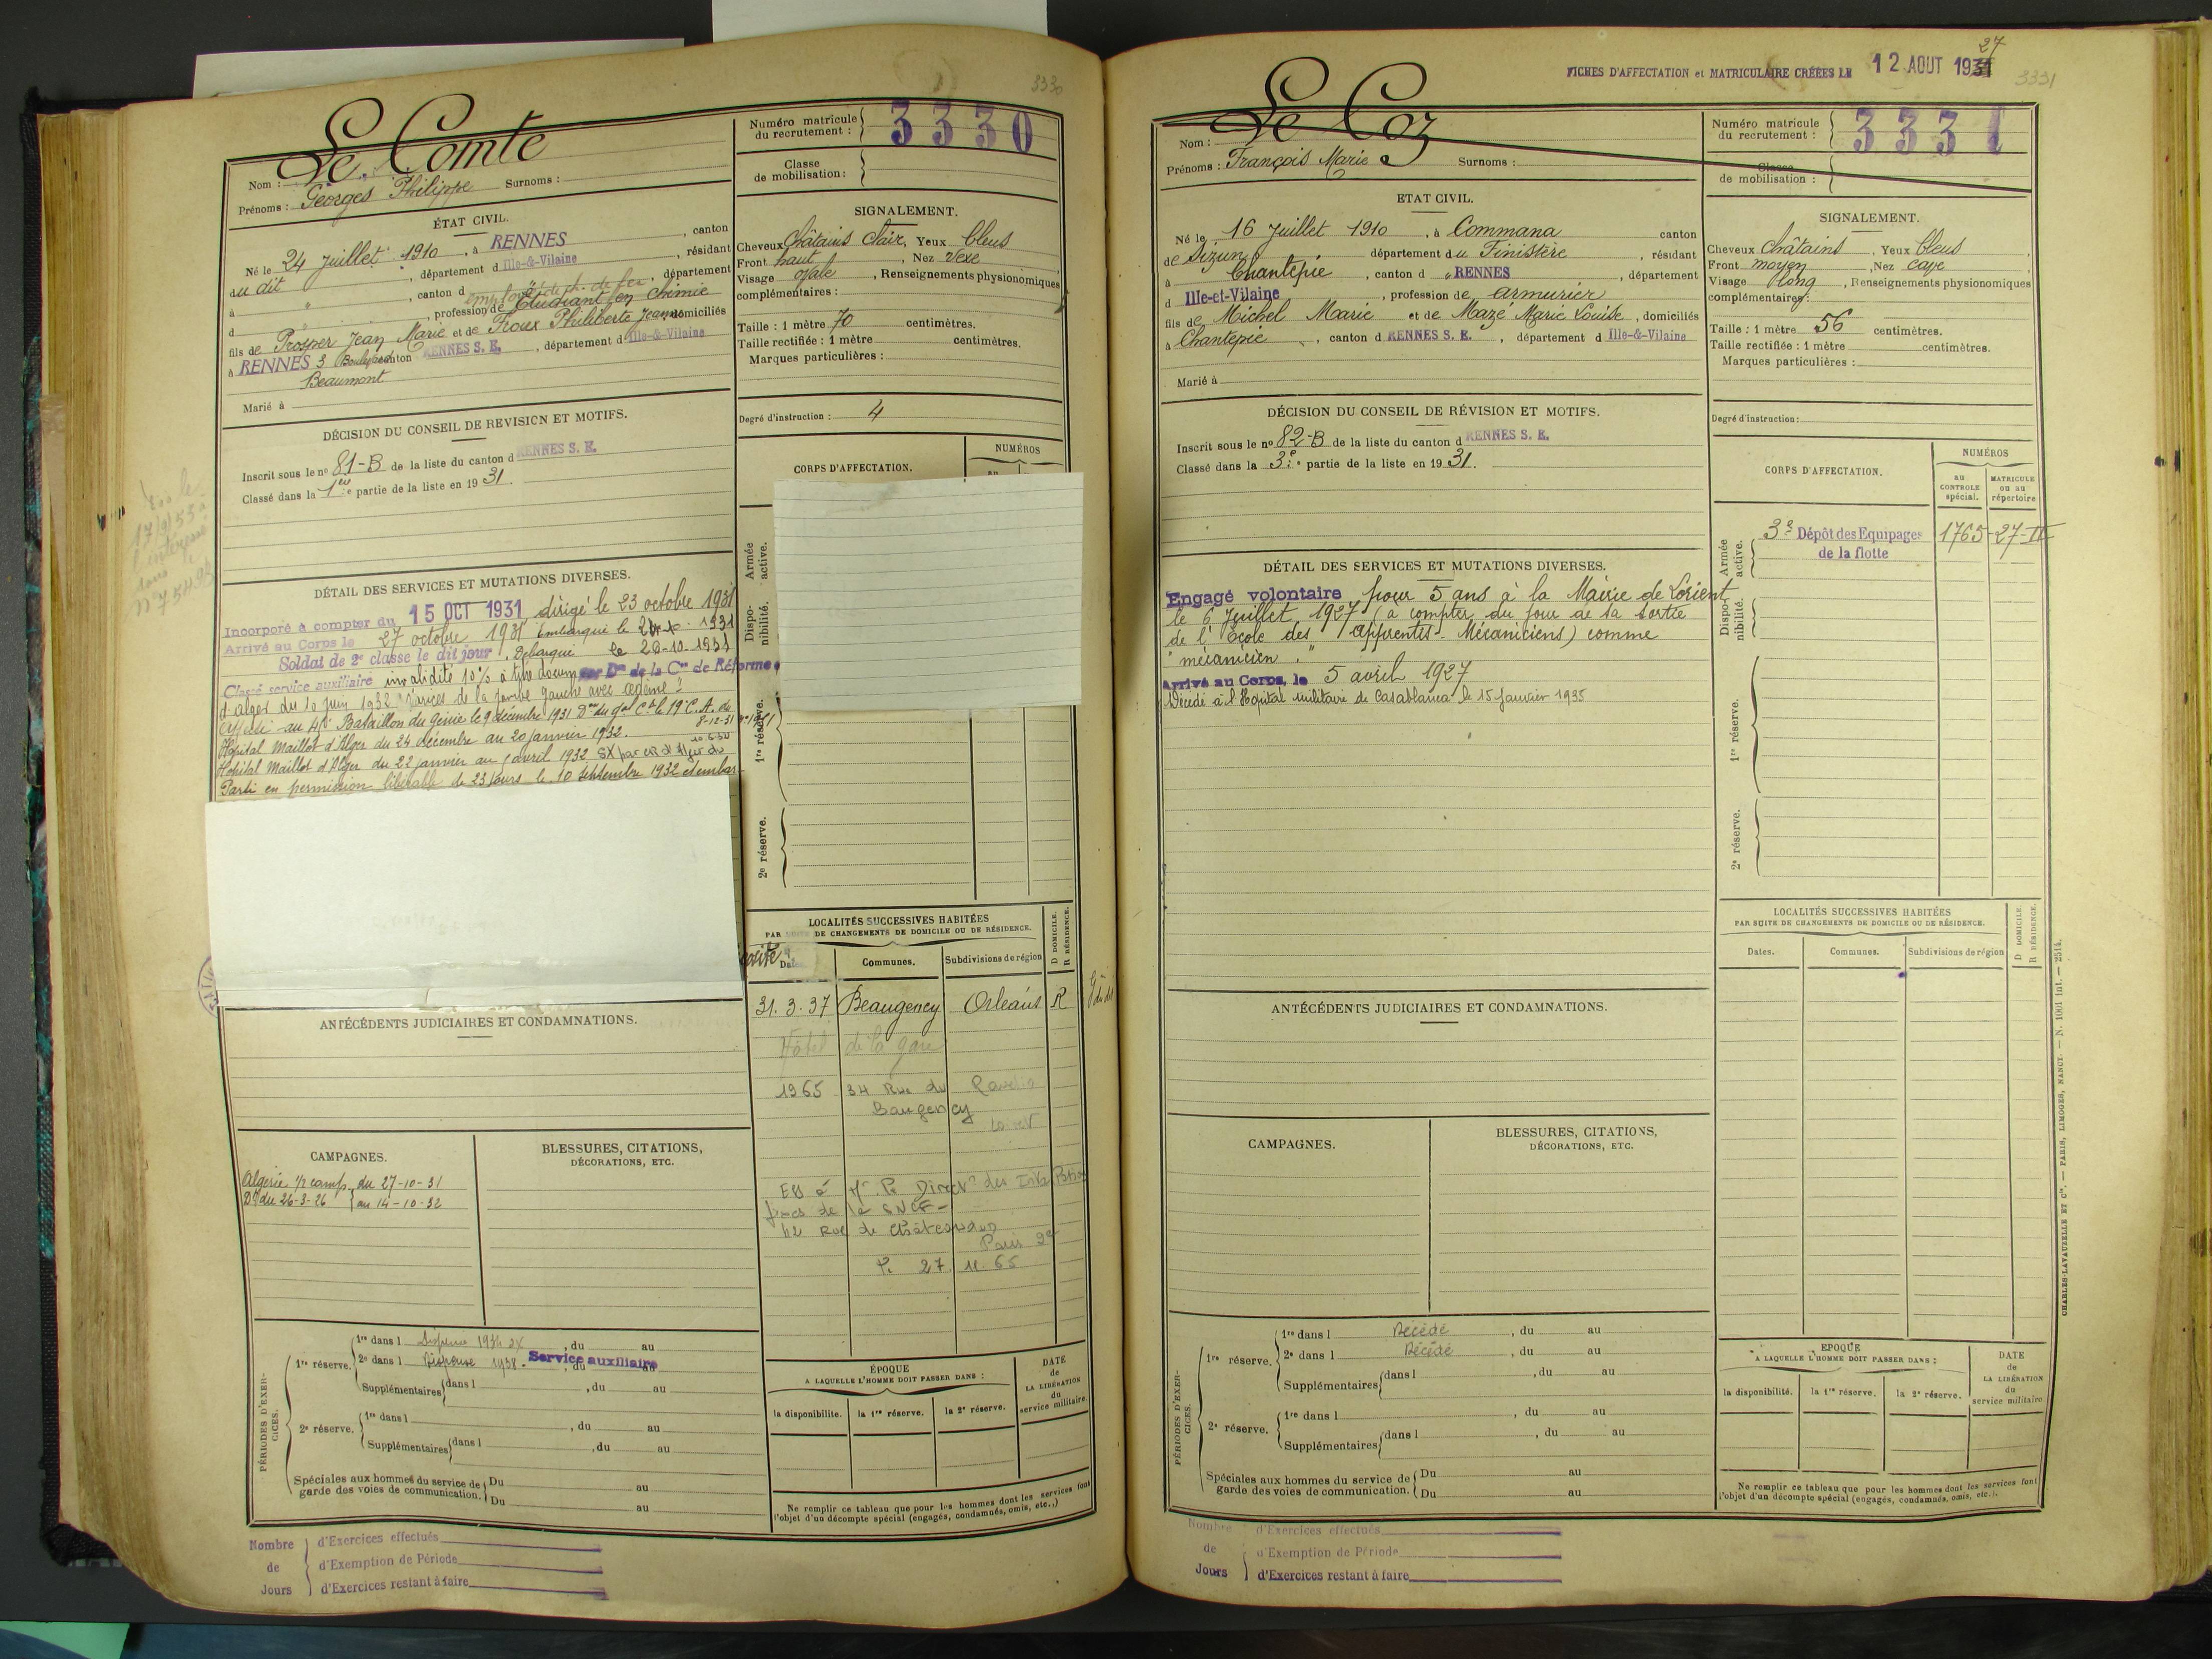 3330
Le Comte
Nom :
Prénoms : Georges Philippe Surnoms :
Numéro matricule du recrutement : 3330
Classe de mobilisation :
ÉTAT CIVIL.
Né le 24 juillet 1910, à RENNES, canton
du dit, département d Ille-&-Vilaine, résidant
à " , canton d , département
d , profession de Etudiant en chimie
fils de Prosper Jean Marie et de Troux Philiberte Jeanne domiciliés
à RENNES 3 Boulevard canton RENNES S. E. , département d Ille-&-Vilaine
Beaumont
Marié à
SIGNALEMENT.
Cheveux Châtains clair, Yeux bleus
Front haut , Nez vexe
Visage ovale , Renseignements physionomiques
complémentaires :
Taille : 1 mètre 70 centimètres.
Taille rectifiée : 1 mètre centimètres.
Marques particulières :
Degré d'instruction : 4
DÉCISION DU CONSEIL DE REVISION ET MOTIFS.
Inscrit sous le no 81-B de la liste du canton d RENNES S. E.
Classé dans la 1ère partie de la liste en 1931.
CORPS D'AFFECTATION.
NUMÉROS
Armée active.
Disponibilité.
1re réserve.
2e réserve.
DÉTAIL DES SERVICES ET MUTATIONS DIVERSES.
Incorporé à compter du 15 OCT 1931 dirigé le 23 octobre 1931
Arrivé au Corps le 27 octobre 1931 Embarqué le
Soldat de 2e classe le dit jour. Débarqué le 26-10-1931
Classé service auxiliaire invalidité 10% à titre docum par Don de la Con de Réforme
d'alger du 10 juin 1932 "Varices de la jambe gauche avec œdème"
Affecté au 45e Bataillon du Génie le 9 décembre 1931 Don du gal Ct le 19e C.A. du
8-12-31
Hôpital Maillot d'Alger du 24 décembre au 20 janvier 1932.
Hôpital Maillot d'Alger du 22 janvier au 1 avril 1932 SX par CR d'Alger du
Parti en permission libérable de 23 jours le 10 septembre 1932 et embar-
ANTÉCÉDENTS JUDICIAIRES ET CONDAMNATIONS.
LOCALITÉS SUCCESSIVES HABITÉES
PAR SUITE DE CHANGEMENTS DE DOMICILE OU DE RÉSIDENCE.
D DOMICILE.
R RÉSIDENCE.
Communes.
Subdivisions de région
31.3.37 Beaugency Orléans R
Hôtel de la gare
1965 34 Rue du Ravelin
Baugency
Loiret
fixes de la SNCF -
42 Rue de Châteaudun
Paris 9e
27.11.65
CAMPAGNES.
Algérie 1/2 camp. du 27-10-31
Dt du 26-3-26 au 14-10-32
BLESSURES, CITATIONS,
DÉCORATIONS, ETC.
PÉRIODES D'EXERCICES.
1re réserve. 1re dans l Dispense 1934 , du au
2e dans l Dispense 1938. Service auxiliaire , du au
Supplémentaires dans l , du au
2e réserve. 1re dans l , du au
Supplémentaires dans l , du au
Spéciales aux hommes du service de garde des voies de communication. Du au
Du au
ÉPOQUE
A LAQUELLE L'HOMME DOIT PASSER DANS :
la disponibilite. la 1re réserve. la 2e réserve.
DATE de LA LIBÉRATION du service militaire.
Ne remplir ce tableau que pour les hommes dont les services font
l'objet d'un décompte spécial (engagés, condamnés, omis, etc.,)
Nombre de Jours
d'Exercices effectués
d'Exemption de Période
d'Exercices restant à faire
FICHES D'AFFECTATION et MATRICULAIRE CRÉÉES LE 12 AOUT 1931
27
3331
Le Coz
Nom :
Prénoms : François Marie Surnoms :
Numéro matricule du recrutement : 3331
Classe de mobilisation :
ETAT CIVIL.
Né le 16 Juillet 1910 , à Commana canton
de Sizun département du Finistère , résidant
à Chantepie , canton d RENNES , département
d Ille-et-Vilaine , profession de armurier
fils de Michel Marie et de Mazé Marie Louise , domiciliés
à Chantepie , canton d RENNES S. E. , département d Ille-&-Vilaine
Marié à
SIGNALEMENT.
Cheveux châtains , Yeux bleus
Front moyen , Nez cave
Visage oblong , Renseignements physionomiques
complémentaires :
Taille : 1 mètre 56 centimètres.
Taille rectifiée : 1 mètre centimètres.
Marques particulières :
Degré d'instruction :
DÉCISION DU CONSEIL DE RÉVISION ET MOTIFS.
Inscrit sous le no 82-B de la liste du canton d RENNES S. E.
Classé dans la 3e partie de la liste en 1931.
CORPS D'AFFECTATION.
NUMÉROS
au CONTROLE spécial.
MATRICULE ou au répertoire
Armée active.
3e Dépôt des Equipages de la flotte 1765-27-II
Disponibilité.
1re réserve.
2e réserve.
DÉTAIL DES SERVICES ET MUTATIONS DIVERSES.
Engagé volontaire pour 5 ans à la Mairie de Lorient
le 6 Juillet 1927 (à compter du jour de sa sortie
de l'École des Apprentis-Mécaniciens) comme
"mécanicien."
Arrivé au Corps, le 5 avril 1927
Décédé à l'Hôpital militaire de Casablanca le 15 Janvier 1935
ANTÉCÉDENTS JUDICIAIRES ET CONDAMNATIONS.
LOCALITÉS SUCCESSIVES HABITÉES
PAR SUITE DE CHANGEMENTS DE DOMICILE OU DE RÉSIDENCE.
Dates. Communes. Subdivisions de région
D DOMICILE.
R RÉSIDENCE.
CAMPAGNES.
BLESSURES, CITATIONS,
DÉCORATIONS, ETC.
PÉRIODES D'EXERCICES.
1re réserve. 1re dans l Décédé , du au
2e dans l Décédé , du au
Supplémentaires dans l , du au
2e réserve. 1re dans l , du au
Supplémentaires dans l , du au
Spéciales aux hommes du service de garde des voies de communication. Du au
Du au
EPOQUE
A LAQUELLE L'HOMME DOIT PASSER DANS :
la disponibilité. la 1re réserve. la 2e réserve.
DATE de LA LIBÉRATION du service militaire
Ne remplir ce tableau que pour les hommes dont les services font
l'objet d'un décompte spécial (engagés, condamnés, omis, etc.).
CHARLES-LAVAUZELLE ET Cie. — PARIS, LIMOGES, NANCY. — N. 1001 int. — 2514.
Nombre de Jours
d'Exercices effectués
d'Exemption de Période
d'Exercices restant à faire